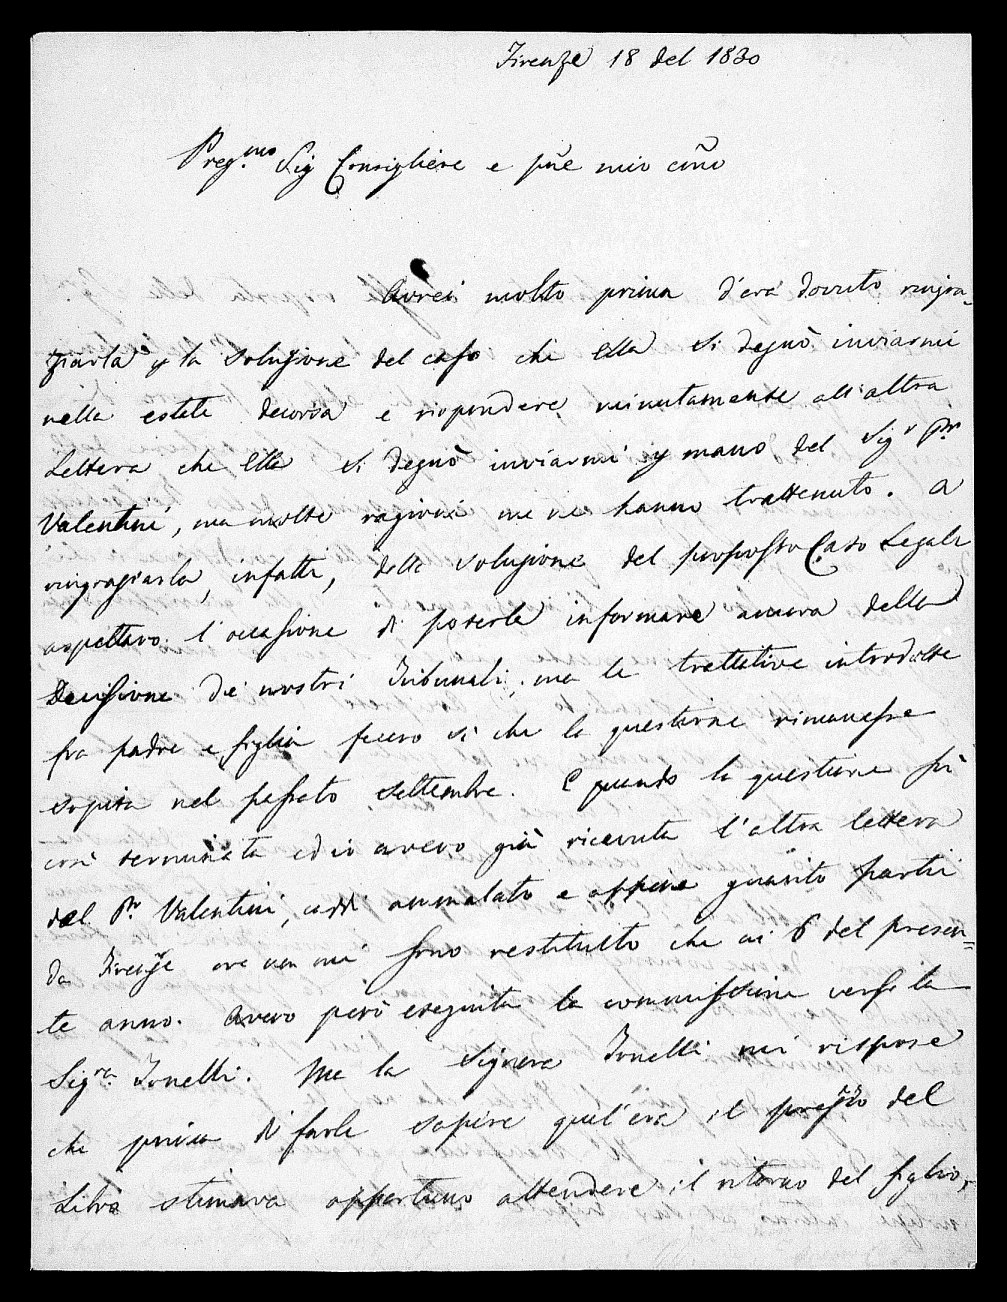 Firenze 18 del 1830
Preg.mo Sig Consigliere e pñe mio cõño
Avrei molto prima d'era dovuto ringra=
ziarla p la Soluzione del caso che Ella si degnò inviarmi
nella estate decorsa e rispondere minutamente all'altra
Lettera che Ella si degnò inviarmi p mano del Sigr Pr
Valentini, ma molte ragioni me ne hanno trattenuto. A
ringraziarla, infatti, della soluzione del proposto Caso Legale
aspettavo l'occasione di poterla informare ancora della
Decisione de' nostri Tribunali, ma le trattative introdotte
fra padre e figlia fecero si che la questione rimanesse
sopita nel passato settembre. E quando la questione fù
così terminata ed io avevo già ricevuta l'altra lettera
dal Pr Valentini, caddi ammalato e appena guarito partii
da Firenze ove non mi sono restituito che ai 6 del presen=
te anno. Avevo però eseguita la commissione verso la
Sigra Tonelli. Ma la Signora Tonelli mi rispose
che prima di farle sapere qual'era il prezzo del
Libro stimava opportuno attendere il ritorno del figlio,